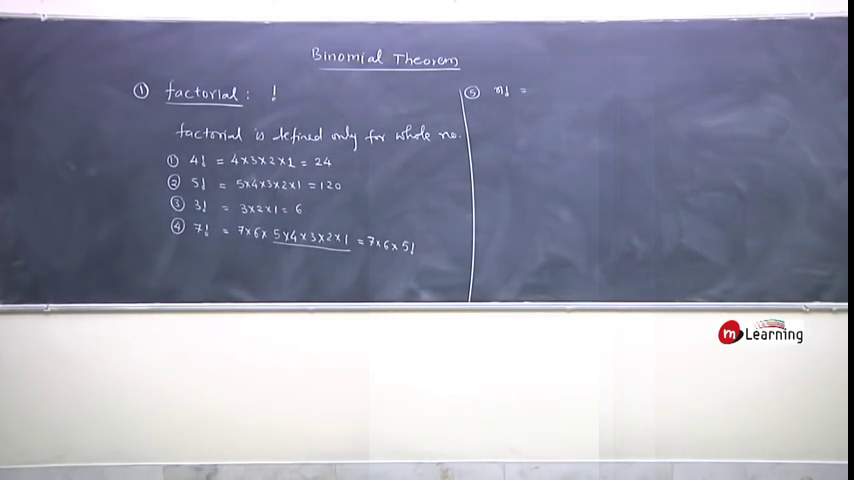 Binomial Theorem
① factorial : !
factorial is defined only for whole no.
① 4! = 4×3×2×1 = 24
② 5! = 5×4×3×2×1 = 120
③ 3! = 3×2×1 = 6
④ 7! = 7×6×5×4×3×2×1 = 7×6×5!
⑤ n! =
m Learning